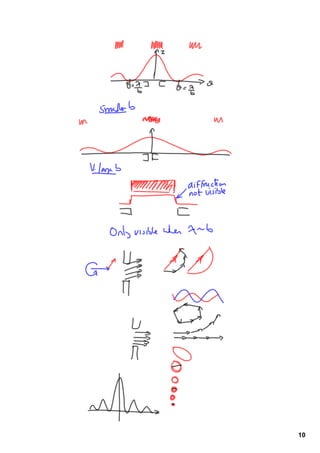 I
θ=λ/b
θ=λ/b
θ
Smaller b
V. large b
diffraction
not visible
Only visible when λ~b
10